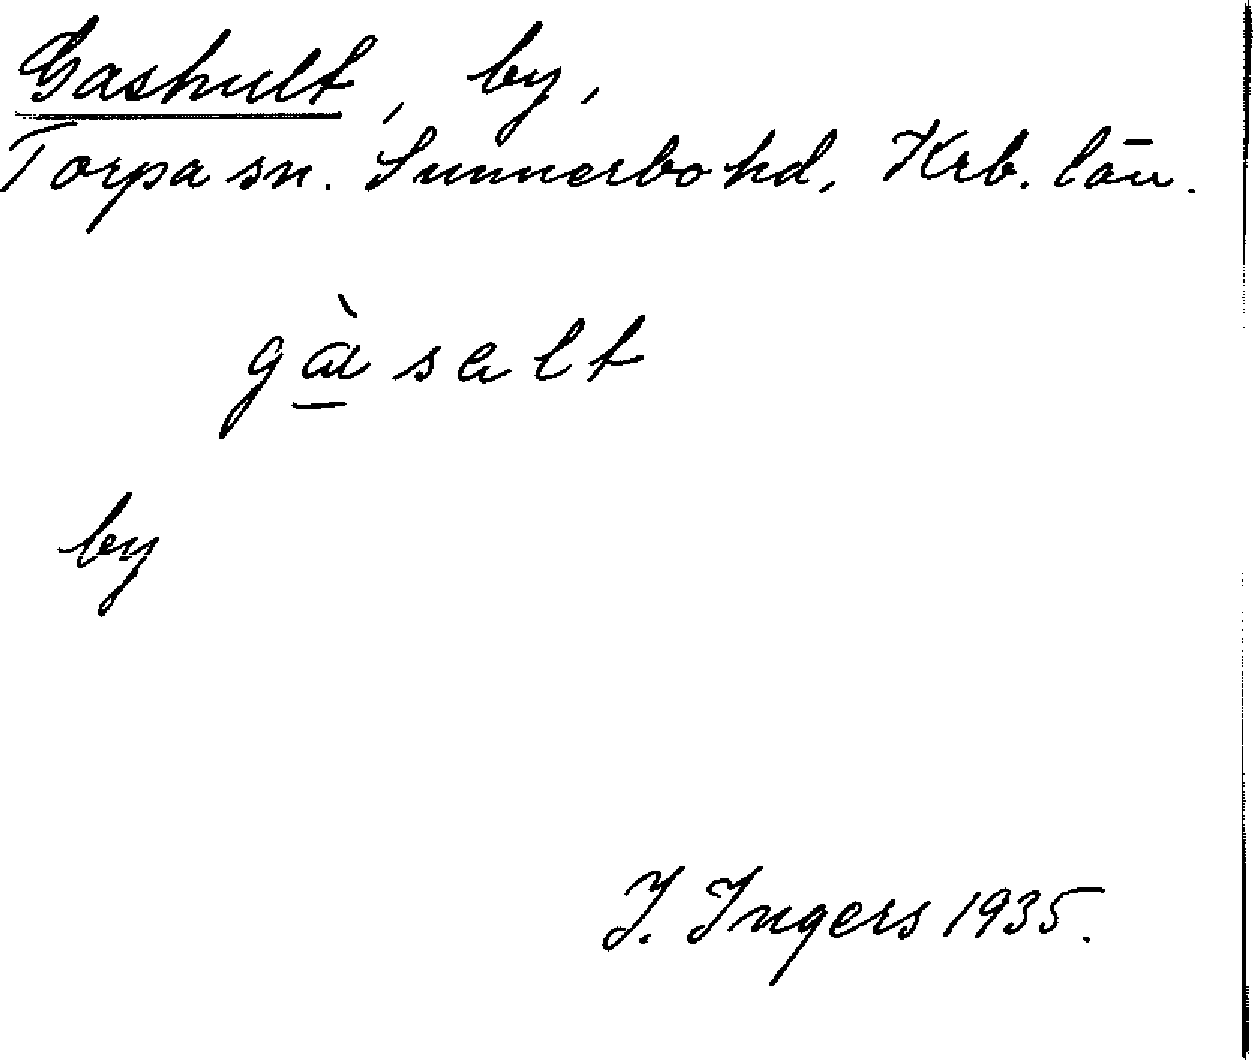 Gashult, by,
Torpa sn. Sunnerbo hd, Krb. län.
gàsalt
by
I. Ingers 1935.